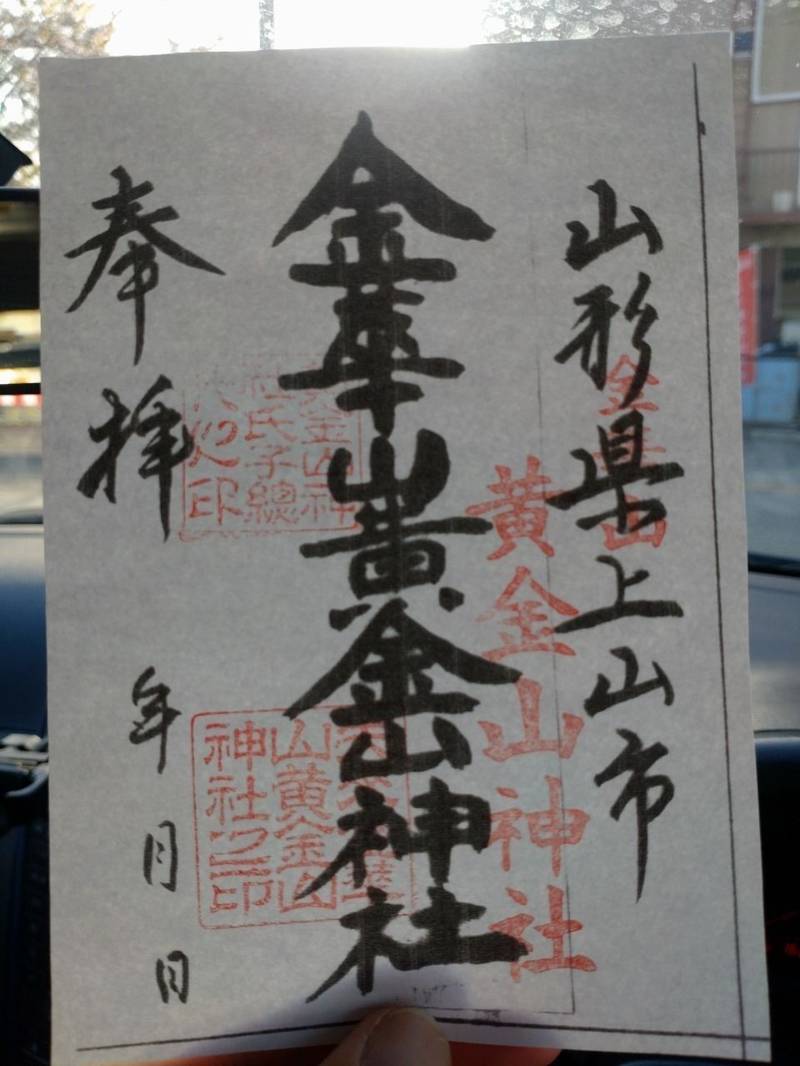 山形県上山市
金華山
黄金山神社
金華山黄金山神社
奉拝
年月日
金山神
社氏子總
代之印
山黄金山
神社之印